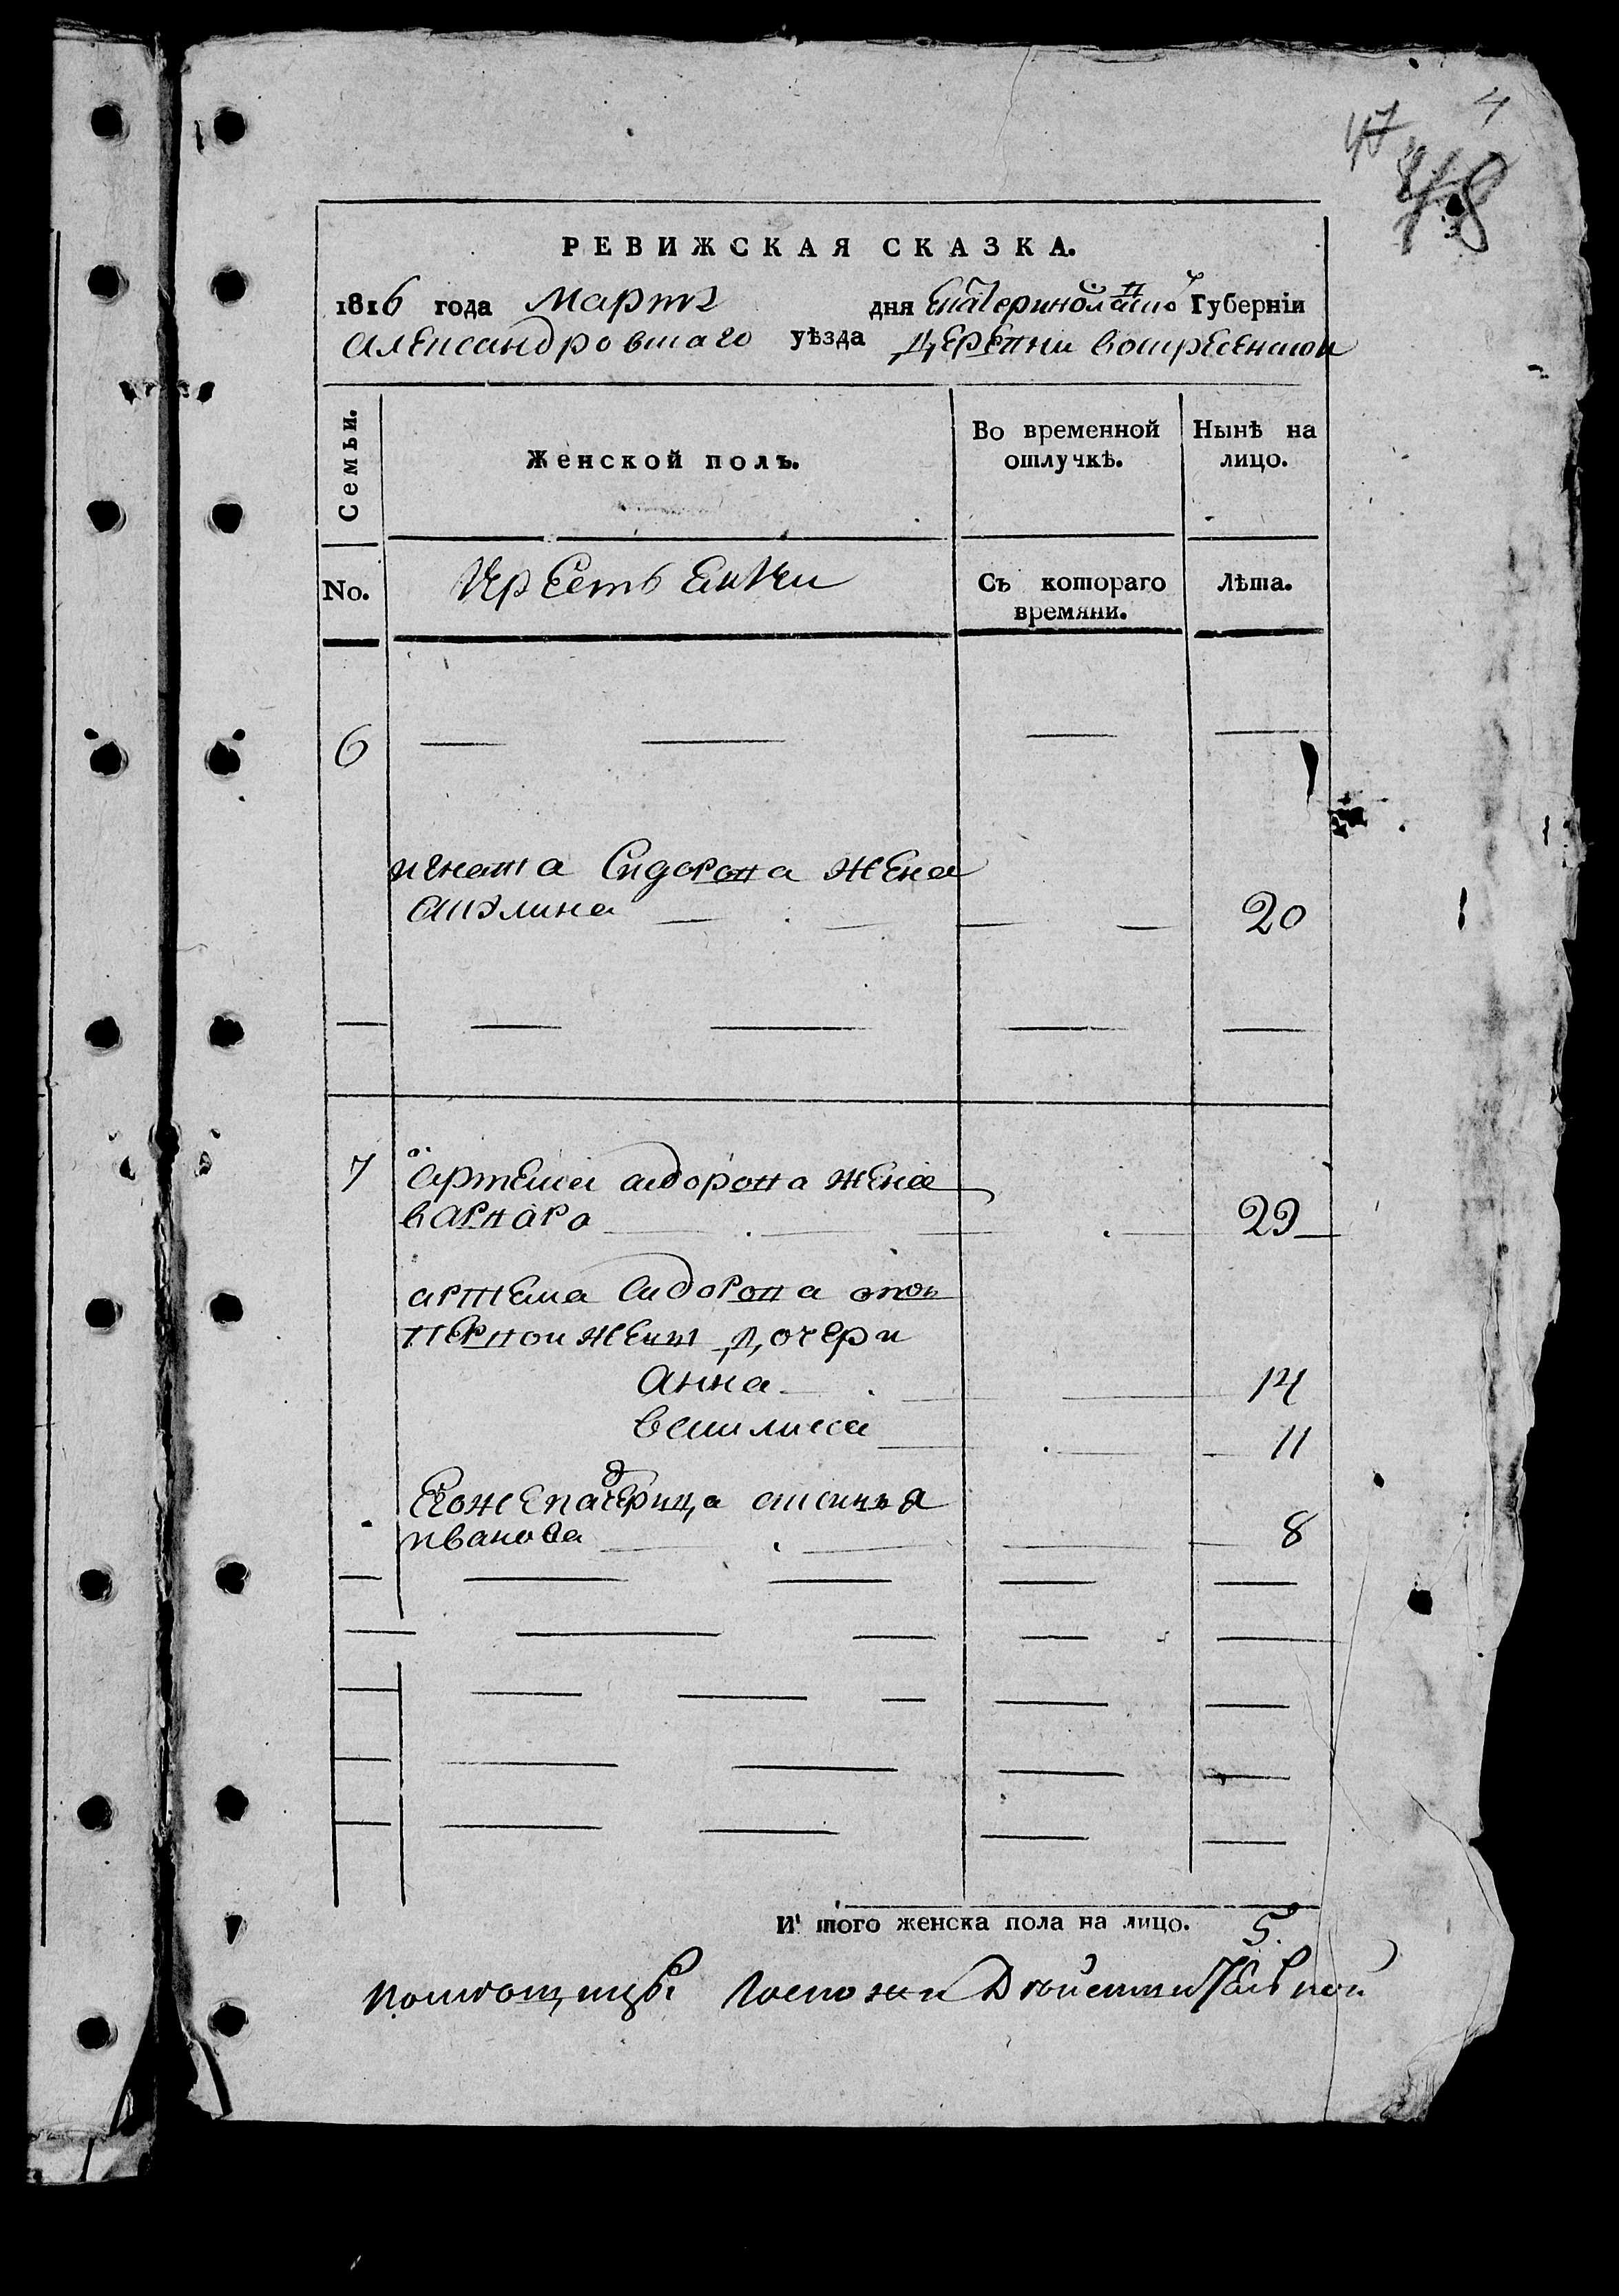 4
47
48
РЕВИЖСКАЯ СКАЗКА.
1816 года Мартъ дня Екатеринославской Губерніи
александровскаго уѣзда Деревни воскресенской
Семьи. Женской полъ. Во временной отлучкѣ. Нынѣ на лицо.
No. Крестьянки Съ котораго времяни. Лѣта.
6
игната Сидорова жена
акулина 20
7 артема сидорова жена
варвара 29
артема сидорова отъ
первой жены дочери
Анна 14
василиса 11
Егоже падчерица аксинья
иванова 8
И того женска пола на лицо. 5.
помещицы Госпожи Действительной